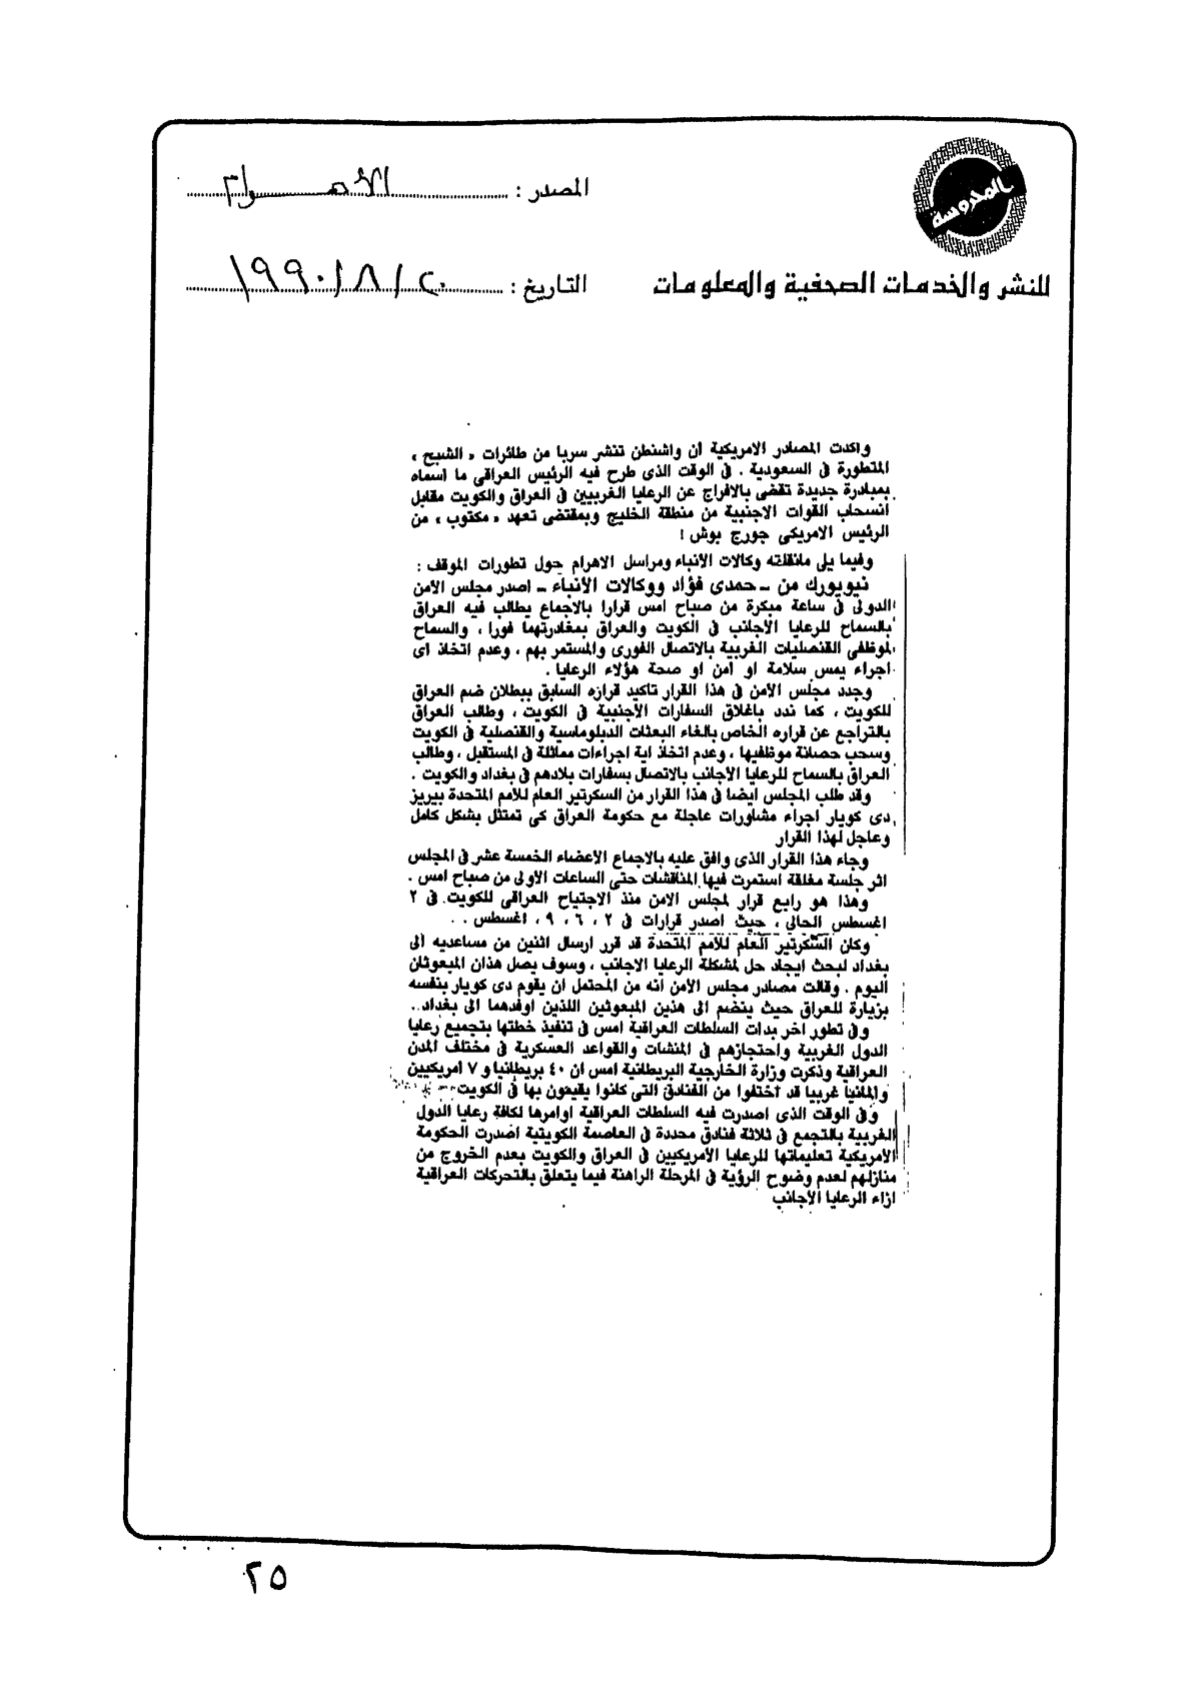 المحروسة
المصدر : الأهرام
للنشر والخدمات الصحفية والمعلومات
التاريخ : ٢٠ / ٨ / ١٩٩٠
واكدت المصادر الامريكية ان واشنطن تنشر سربا من طائرات « الشبح »
المتطورة فى السعودية . فى الوقت الذى طرح فيه الرئيس العراقى ما اسماه
بمبادرة جديدة تقضى بالافراج عن الرعايا الغربيين فى العراق والكويت مقابل
انسحاب القوات الاجنبية من منطقة الخليج وبمقتضى تعهد « مكتوب » من
الرئيس الامريكى جورج بوش !
وفيما يلى مانقلته وكالات الأنباء ومراسل الاهرام حول تطورات الموقف :
نيويورك من ـ حمدى فؤاد ووكالات الأنباء ـ اصدر مجلس الأمن
الدولى فى ساعة مبكرة من صباح امس قرارا بالاجماع يطالب فيه العراق
بالسماح للرعايا الأجانب فى الكويت والعراق بمغادرتهما فورا ، والسماح
لموظفى القنصليات الغربية بالاتصال الفورى والمستمر بهم ، وعدم اتخاذ اى
اجراء يمس سلامة او امن او صحة هؤلاء الرعايا .
وجدد مجلس الأمن فى هذا القرار تاكيد قراره السابق ببطلان ضم العراق
للكويت ، كما ندد باغلاق السفارات الأجنبية فى الكويت ، وطالب العراق
بالتراجع عن قراره الخاص بالغاء البعثات الدبلوماسية والقنصلية فى الكويت
وسحب حصانة موظفيها ، وعدم اتخاذ اية اجراءات مماثلة فى المستقبل ، وطالب
العراق بالسماح للرعايا الأجانب بالاتصال بسفارات بلادهم فى بغداد والكويت .
وقد طلب المجلس ايضا فى هذا القرار من السكرتير العام للأمم المتحدة بيريز
دى كويار اجراء مشاورات عاجلة مع حكومة العراق كى تمتثل بشكل كامل
وعاجل لهذا القرار
وجاء هذا القرار الذى وافق عليه بالاجماع الاعضاء الخمسة عشر فى المجلس
اثر جلسة مغلقة استمرت فيها المناقشات حتى الساعات الاولى من صباح امس .
وهذا هو رابع قرار لمجلس الامن منذ الاجتياح العراقى للكويت فى ٢
اغسطس الحالى ، حيث اصدر قرارات فى ٢ ، ٦ ، ٩ ، اغسطس . .
وكان السكرتير العام للأمم المتحدة قد قرر ارسال اثنين من مساعديه الى
بغداد لبحث ايجاد حل لمشكلة الرعايا الاجانب ، وسوف يصل هذان المبعوثان
اليوم . وقالت مصادر مجلس الأمن انه من المحتمل ان يقوم دى كويار بنفسه
بزيارة للعراق حيث ينضم الى هذين المبعوثين اللذين اوفدهما الى بغداد ..
وفى تطور اخر بدات السلطات العراقية امس فى تنفيذ خطتها بتجميع رعايا
الدول الغربية واحتجازهم فى المنشات والقواعد العسكرية فى مختلف المدن
العراقية وذكرت وزارة الخارجية البريطانية امس ان ٤٠ بريطانيا و ٧ امريكيين
والمانيا غربيا قد اختفوا من الفنادق التى كانوا يقيمون بها فى الكويت
وفى الوقت الذى اصدرت فيه السلطات العراقية اوامرها لكافة رعايا الدول
الغربية بالتجمع فى ثلاثة فنادق محددة فى العاصمة الكويتية اصدرت الحكومة
الامريكية تعليماتها للرعايا الأمريكيين فى العراق والكويت بعدم الخروج من
منازلهم لعدم وضوح الرؤية فى المرحلة الراهنة فيما يتعلق بالتحركات العراقية
ازاء الرعايا الاجانب
٢٥